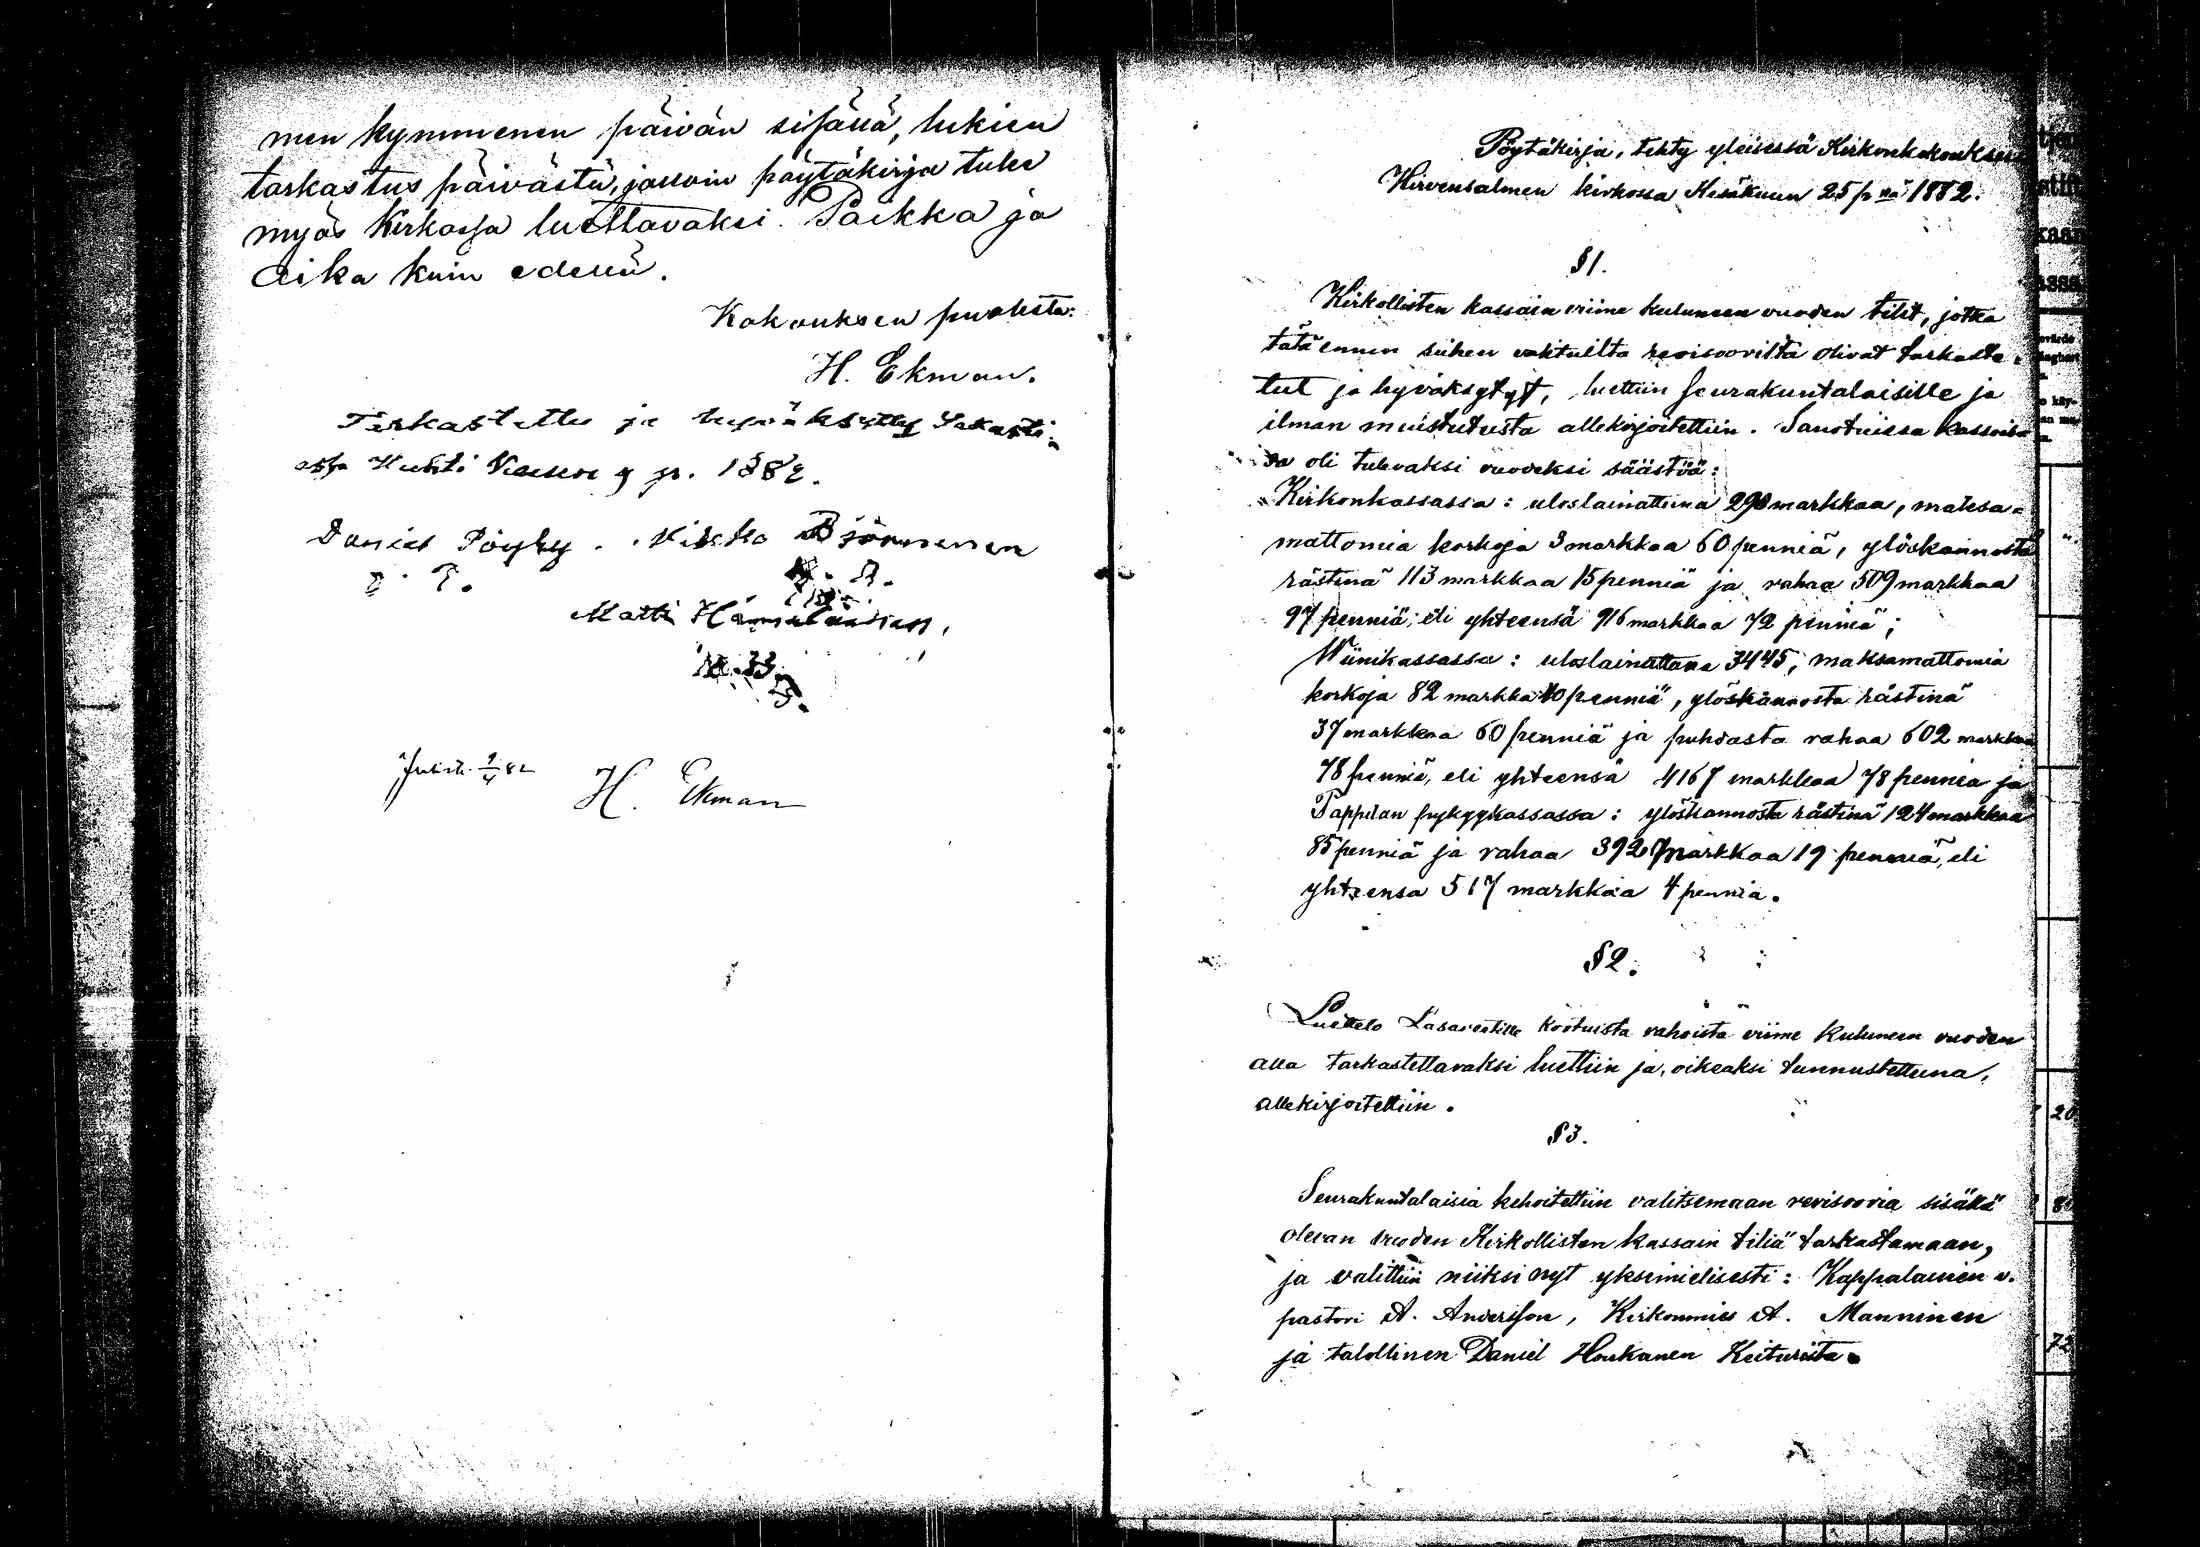 men kymmenen päivän sisässä, lukien
tarkastus päivästä, jolloin pöytäkirja tulee
myös Kirkossa luettavaksi. Paikka ja
Aika kuin edessä.
Kokouksen puolesta:
H. Ekman.
Tarkastettu ja hyväksytty Sakasti-
assa Huhti Kuun 9 p. 1882.
Daniel Pöyhy. Mikko Björninen
Matti Hämäläinen,
9/4 82
H. Ekman
Pöytäkirja, tehty yleisessä Kirkonkokouksessa
Hirvensalmen kirkossa Kesäkuun 25 p nä 1882.
§ 1.
Kirkollisten kassain viime kuluneen vuoden tilit, jotka
tätä ennen siihen valituilta revisoorilta olivat tarkaste-
tut ja hyväksytyt, luettiin seurakuntalaisille ja
ilman muistutusta allekirjoitettiin. Sanotuissa kassois-
sa oli tulevaksi vuodeksi säästöä:
Kirkonkassassa: uloslainattuna 290 markkaa, maksa-
mattomia korkoja 3 markkaa 60 penniä, ylöskannosta
rästinä 113 markkaa 15 penniä ja rahaa 509 markkaa
97 penniä, eli yhteensä 916 markkaa 72 penniä;
Wiinikassassa: uloslainattuna 3445, maksamattomia
korkoja 82 markkaa 40 penniä, ylöskannosta rästinä
37 markkaa 60 penniä ja puhdasta rahaa 602 markkaa
78 penniä, eli yhteensä 4167 markkaa 78 penniä ja
Pappilan pytyykassassa: ylöskannosta rästinä 124 markkaa
85 penniä ja rahaa 392 markkaa 19 penniä, eli
yhteensä 517 markkaa 4 penniä.
§ 2.
Luettelo Lasareetille kootuista rahoista viime kuluneen vuoden
alla tarkastettavaksi luettiin ja, oikeaksi tunnustettuna,
allekirjoitettiin.
§ 3.
Seurakuntalaisia kehoitettiin valitsemaan revisooria sisällä
olevan vuoden Kirkollisten kassain tiliä tarkastamaan,
ja valittiin niiksi nyt yksimielisesti: Kappalainen v.
pastori A. Andersson, Kirkonmies A. Manninen
ja talollinen Daniel Honkanen Keiturista.
20
80
72